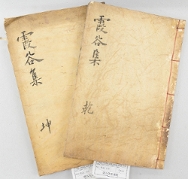 霞谷集
乾
霞谷集
坤